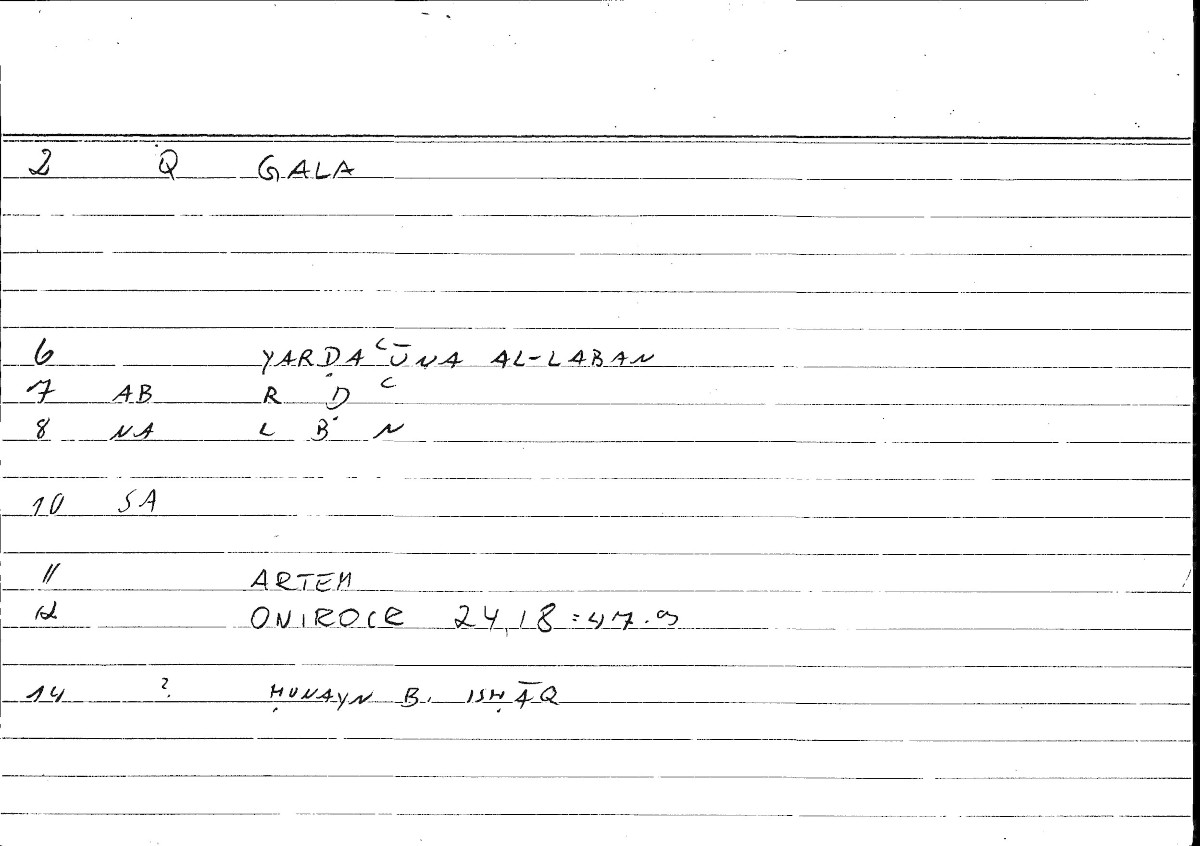 2 Q GALA
6 YARḌAʿŪNA AL-LABAN
7 AB R Ḍ ʿ
8 NA L B N
10 SA
11 ARTEM
12 ONIROCR 24,18 = 47.9
14 ? ḤUNAYN B. ISḤĀQ